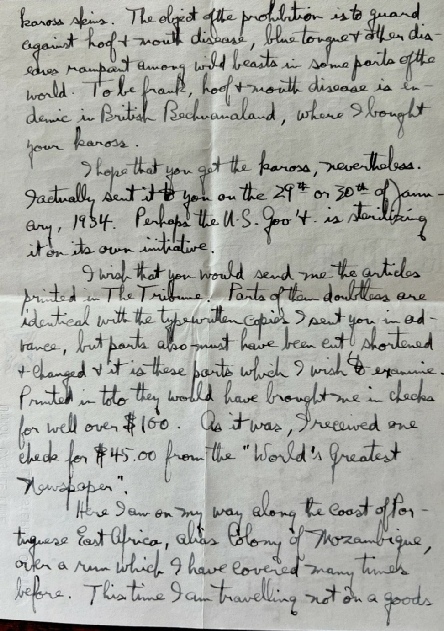 kaross skins. The object of the prohibition is to guard
against hoof + mouth disease, blue tongue + other dis-
eases rampant among wild beasts in some parts of the
world. To be frank, hoof + mouth disease is en-
demic in British Bechuanaland, where I bought
your kaross.
I hope that you get the kaross, nevertheless.
I actually sent it to you on the 29th or 30th of Janu-
ary, 1934. Perhaps the U.S. Gov't. is sterilizing
it on its own initiative.
I wish that you would send me the articles
printed in The Tribune. Parts of them doubtless are
identical with the typewritten copies I sent you in ad-
vance, but parts also must have been cut, shortened
+ changed + it is these parts which I wish to examine.
Printed in toto they would have brought me in checks
for well over $100. As it was, I received one
check for $45.00 from the "World's Greatest
Newspaper".
Here I am on my way along the coast of Por-
tuguese East Africa, alias Colony of Mozambique,
over a run which I have covered many times
before. This time I am travelling not on a goods